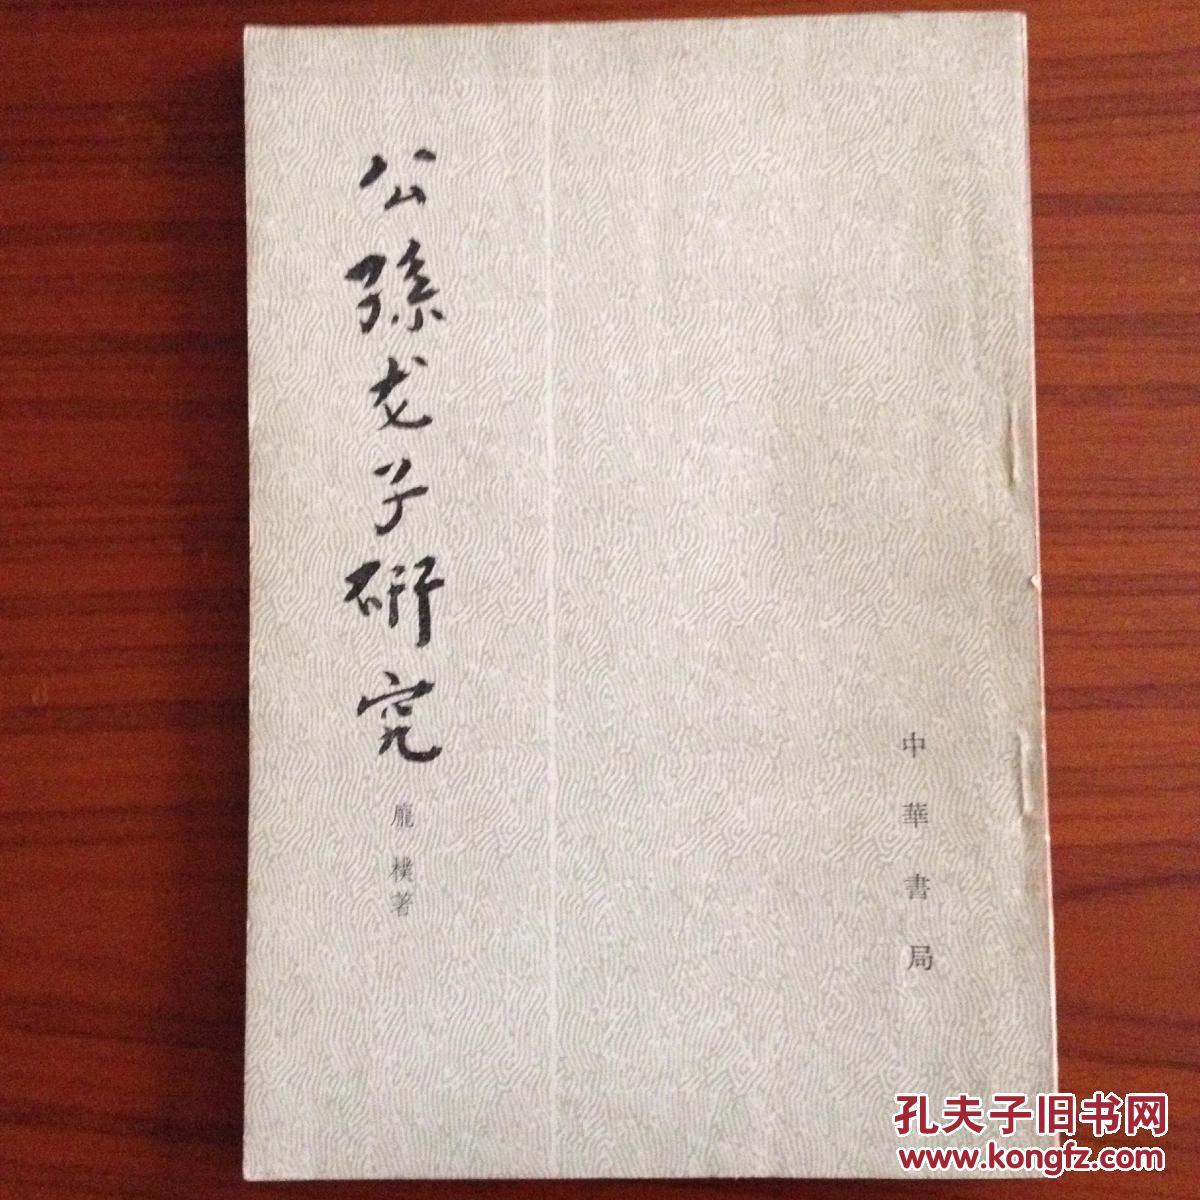 公孫龙子研究
龐樸著
中華書局
孔夫子旧书网
www.kongfz.com